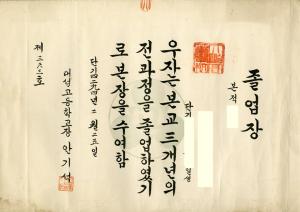 졸업장
본적
단기
일생
우자는본교三개년의
전과정을졸업하였기
로본장을수여함
단기四二九四年二월二五일
여성고등학교장 안기석
제二六二호